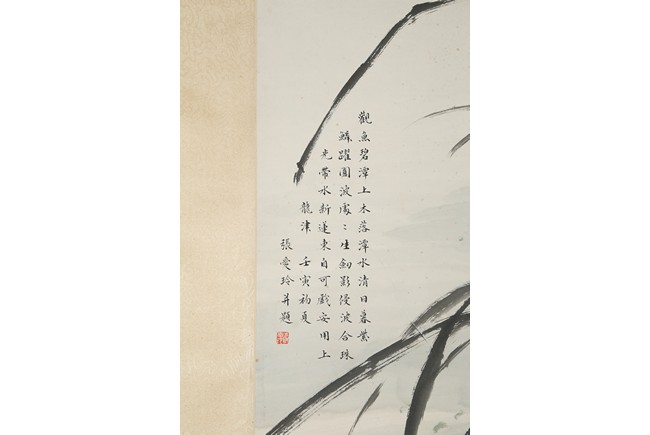 觀魚碧潭上木落潭水清日暮紫
鱗躍圓波處〻生劍影侵波合珠
光帶水新蓮東自可戲安用上
龍津 壬寅初夏
張愛玲并題